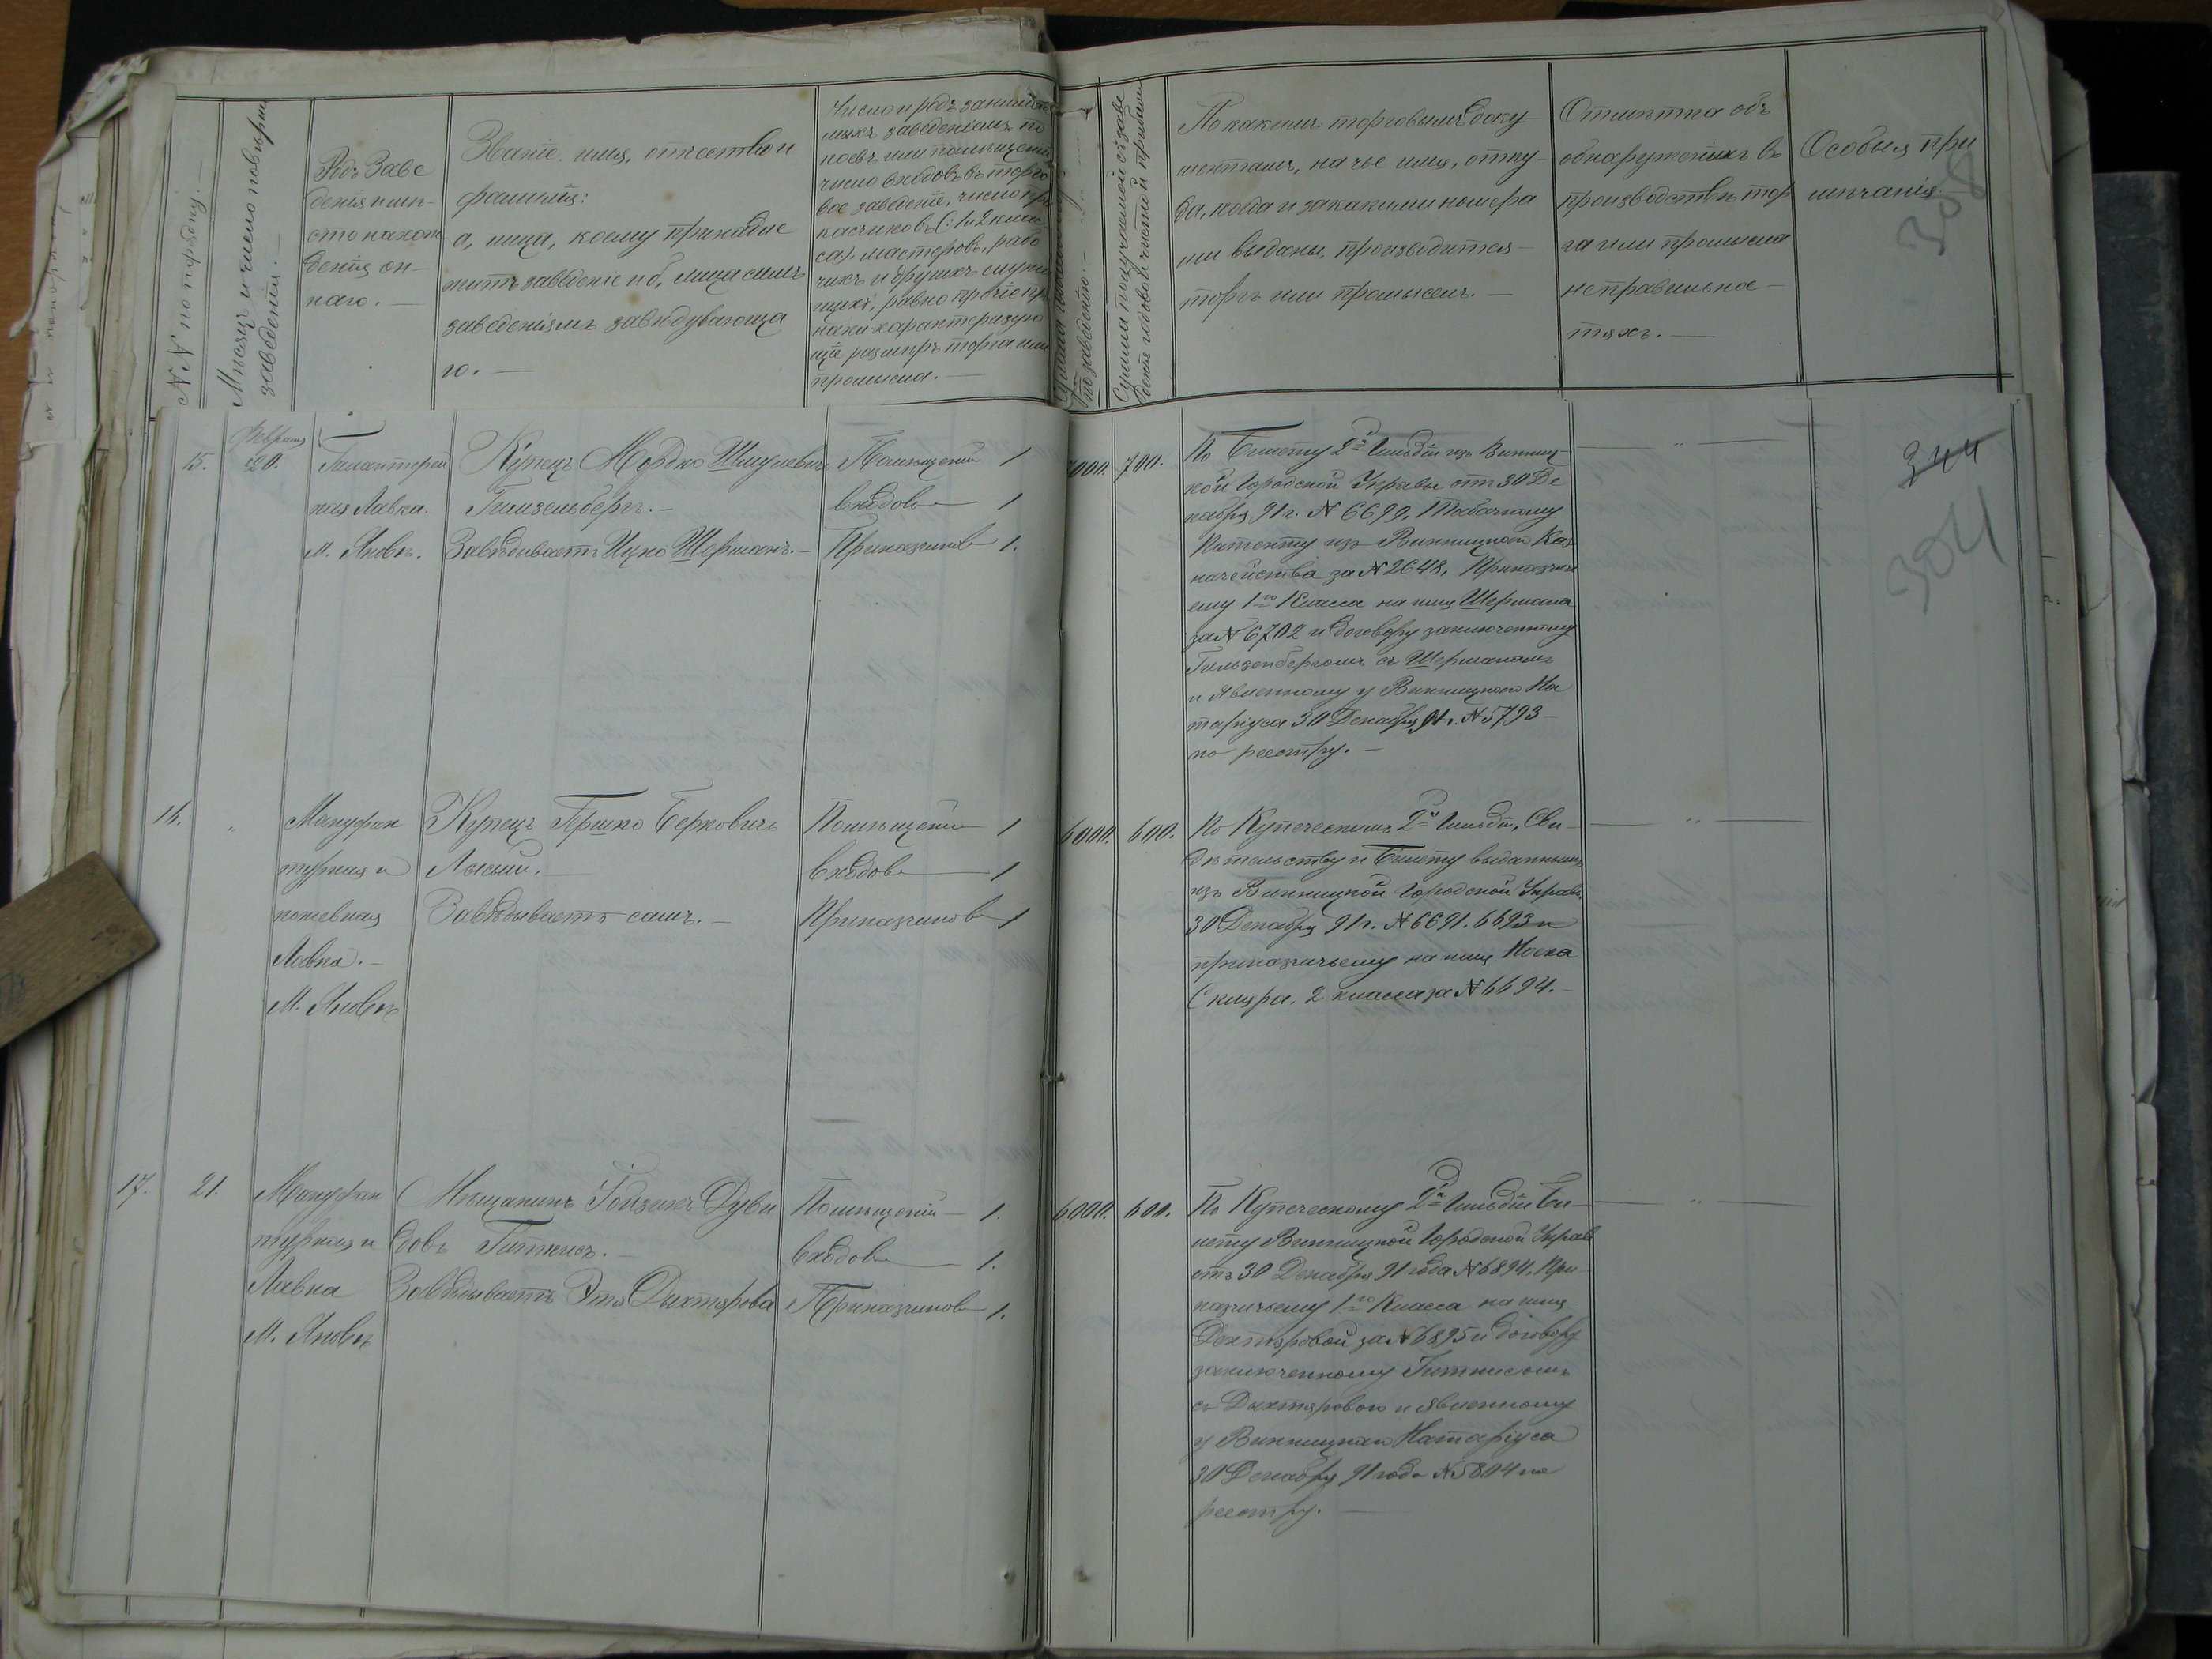 №№ по порядку. —
Мѣсяцъ и число повѣрки
заведенія. —
Родъ Заве
денія и мѣ-
сто нахож
денія он-
наго. —
Званіе, имя, отчество и
фамилія:
а, лица, коему принадле
житъ заведеніе и б, лица самъ
заведеніямъ завѣдувающа
го. —
Число и родъ занимае
мыхъ заведеніемъ по
коевъ или помѣщеній
число входовъ въ торго
вое заведеніе, число при
касчиковъ (1 и 2 клас
са) мастеровъ, рабо
чихъ и другихъ служа
щихъ, равно прочіе пр
наки характеризую
щіе размѣръ торга или
промысла. —
по заведенію. —
Сумма получаемой отъ заве
денія годовой чистой прибыли
По какимъ торговымъ доку-
ментамъ, на чье имя, отку-
да, когда и за какими номера
ми выданы, производится —
торгъ или промыселъ. —
Отмѣтка объ
обнаруженыхъ въ
производствѣ тор
га или промысла
неправильно-
стяхъ. —
Особыя при
мѣчанія.
308
15.
Февраля
20.
Галантерей
ная Лавка.
м. Яновъ.
Купецъ Мордко Шмулевичъ
Гилзенбергъ. —
Завѣдываетъ Ицко Шерманъ. —
Помѣщеній 1
входовъ — 1
Приказчиковъ 1.
7000.
700.
По Билету 2й Гильдіи изъ Винниц
кой Городской Управы отъ 30 Де
кабря 91 г. № 6699, Табачному
Патенту изъ Винницкого Каз
начейства за № 2648, Приказчи
ему 1го Класса на имя Шермана
за № 6702 и договору заключенному
Гильзенбергомъ съ Шерманомъ
и явленному у Винницкого На
таріуса 30 Декабря 91 г. № 5793 —
по реестру. —
— " —
344
304
16.
"
Мануфак
турная и
кожевная
Лавка. —
М. Яновъ
Купецъ Гершко Берковичъ
Лысый. —
Завѣдываетъ самъ. —
Помѣщеній 1
входовъ — 1
Приказчиковъ 1
6000.
600.
По Купеческимъ 2й Гильдіи, Сви-
дѣтельству и Билету выданнымъ
изъ Винницкой Городской Управы
30 Декабря 91 г. № 6691. 6693 и
приказчьему на имя Иоска
Скицри. 2 класса за № 6694. —
— " —
17.
21.
Мануфак
турная и
Лавка
М. Яновъ
Мѣщанинъ Гойзакъ Дуви
довъ Гитнисъ. —
Завѣдываетъ Эта Дыхтярова
Помѣщеній — 1.
входовъ — 1.
Приказчиковъ — 1.
6000.
600.
По Купеческому 2й Гильдіи Би-
лету Винницкой Городской Управ
отъ 30 Декабря 91 года № 6894, При-
казчьему 1го Класса на имя
Дехтяровой за № 6895 и договору
заключенному Гитнисомъ
съ Дыхтяровою и явленному
у Винницкаго Натаріуса
30 Декабря 91 года № 5804 по
реестру. —
— " —